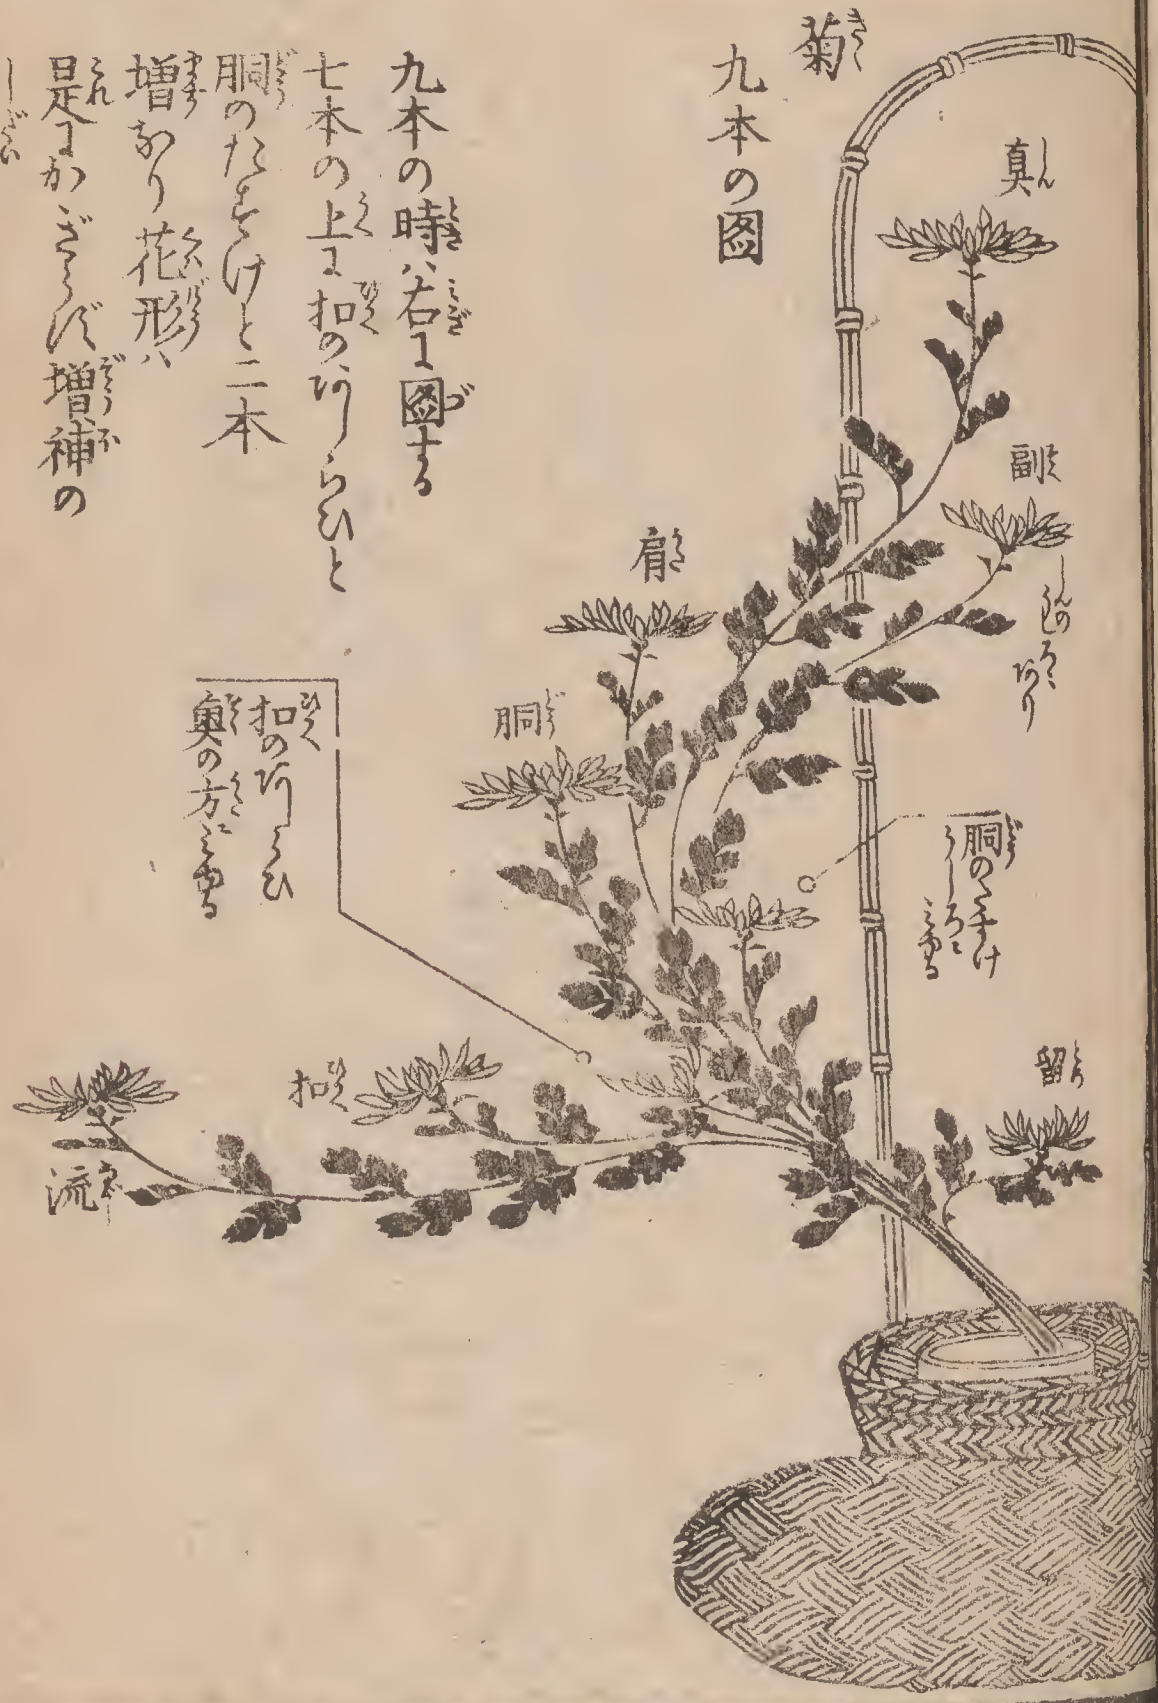 菊
九本の圖
真
副
しんのうしろにあり
肩
胴
胴のたすけ
うしろに
みゆる
留
扣のあしらひ
奥の方にみゆる
扣
流
九本の時ハ右に圖する
七本の上に扣のあしらひと
胴のたすけと二本
増なり花形ハ
是にかぎらず増補の